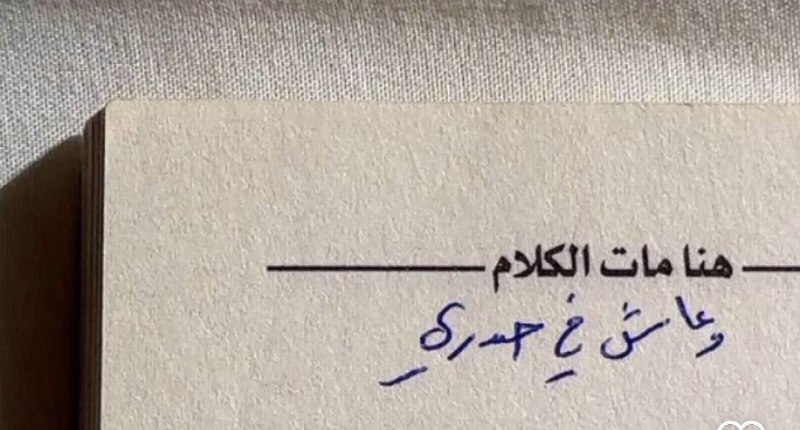 هنا مات الكلام
وعاش في صدري